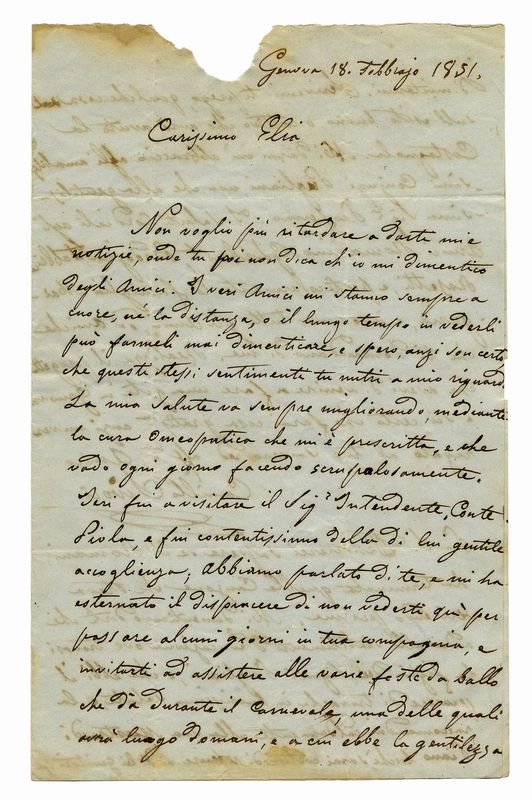 Genova 18. Febbrajo 1851.
Carissimo Elia
Non voglio più ritardare a darti mie
notizie, onde tu poi non dica ch'io mi dimentico
degli Amici. I veri Amici mi stanno sempre a
cuore, nè la distanza, o il lungo tempo in vederli
può farmeli mai dimenticare, e spero, anzi son certo
che questi stessi sentimenti tu nutri a mio riguard
La mia salute va sempre migliorando, mediante
la cura omeopatica che mi è prescritta, e che
vado ogni giorno facendo scrupolosamente.
Jeri fui a visitare il Sigr Intendente, Conte
Piola, e fui contentissimo della di lui gentile
accoglienza; abbiamo parlato di te, e mi ha
esternato il dispiacere di non vederti quì per
passare alcuni giorni in tua compagnia, e
invitarti ad assistere alle varie feste da ballo
che dà durante il Carnevale, una delle quali
avrà luogo domani, e a cui ebbe la gentilezza